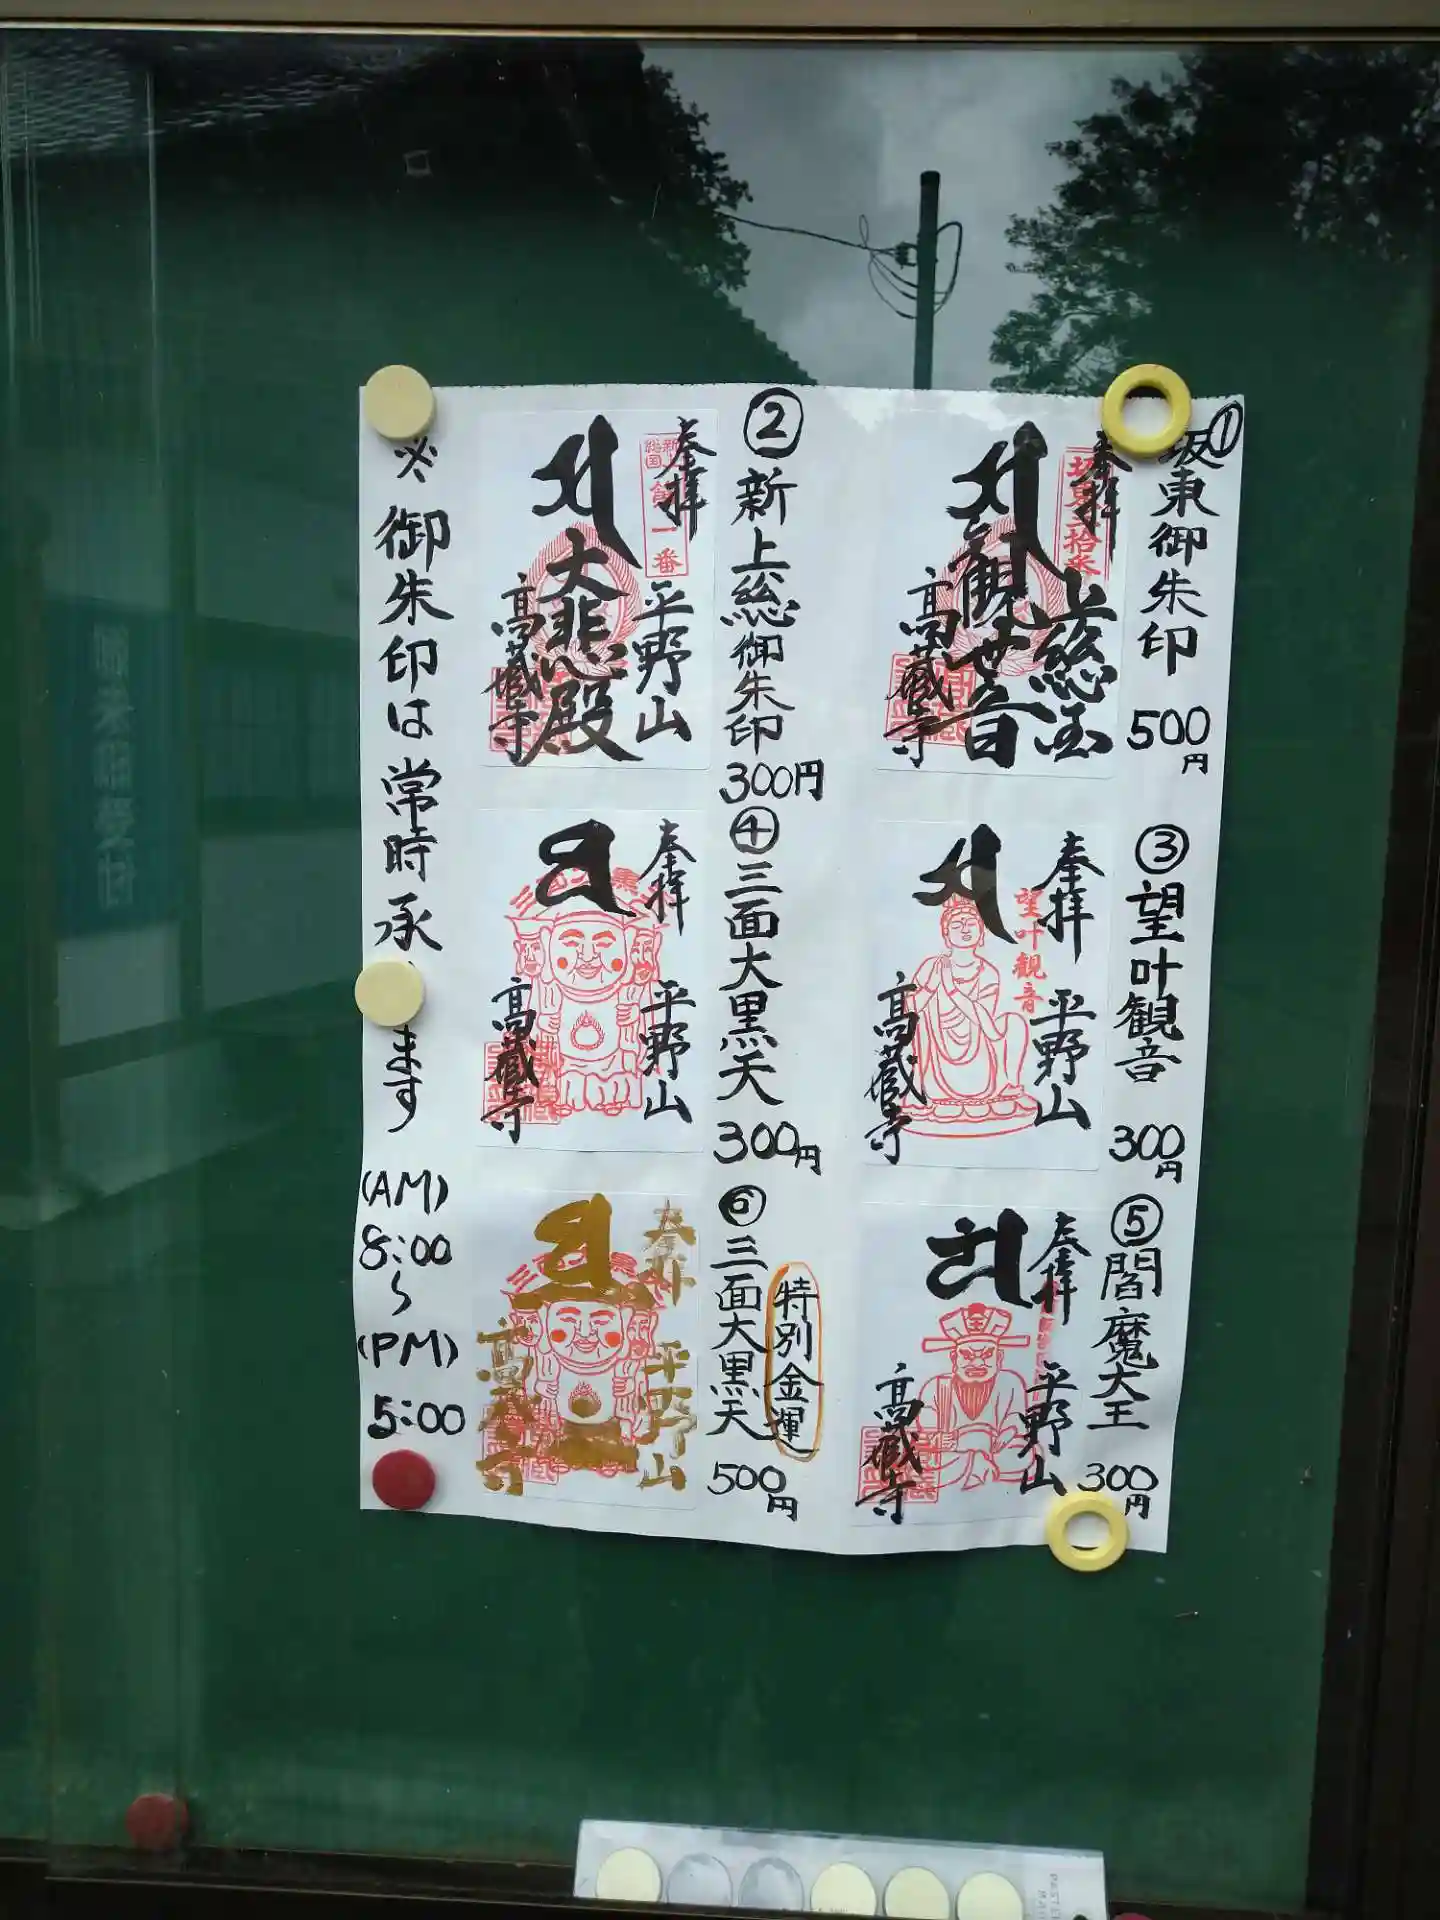 ①
坂東御朱印
500円
奉拝
坂東三拾番
上総国
観世音
高蔵寺
②
新上総御朱印
300円
奉拝
新上総国
一番
平野山
大悲殿
高蔵寺
③
望叶観音
300円
奉拝
望叶観音
平野山
高蔵寺
④
三面大黒天
300円
奉拝
平野山
高蔵寺
⑤
閻魔大王
300円
奉拝
平野山
高蔵寺
⑥
三面大黒天
特別金運
500円
奉拝
平野山
高蔵寺
※御朱印は常時承 ます
(AM)
8:00
〜
(PM)
5:00